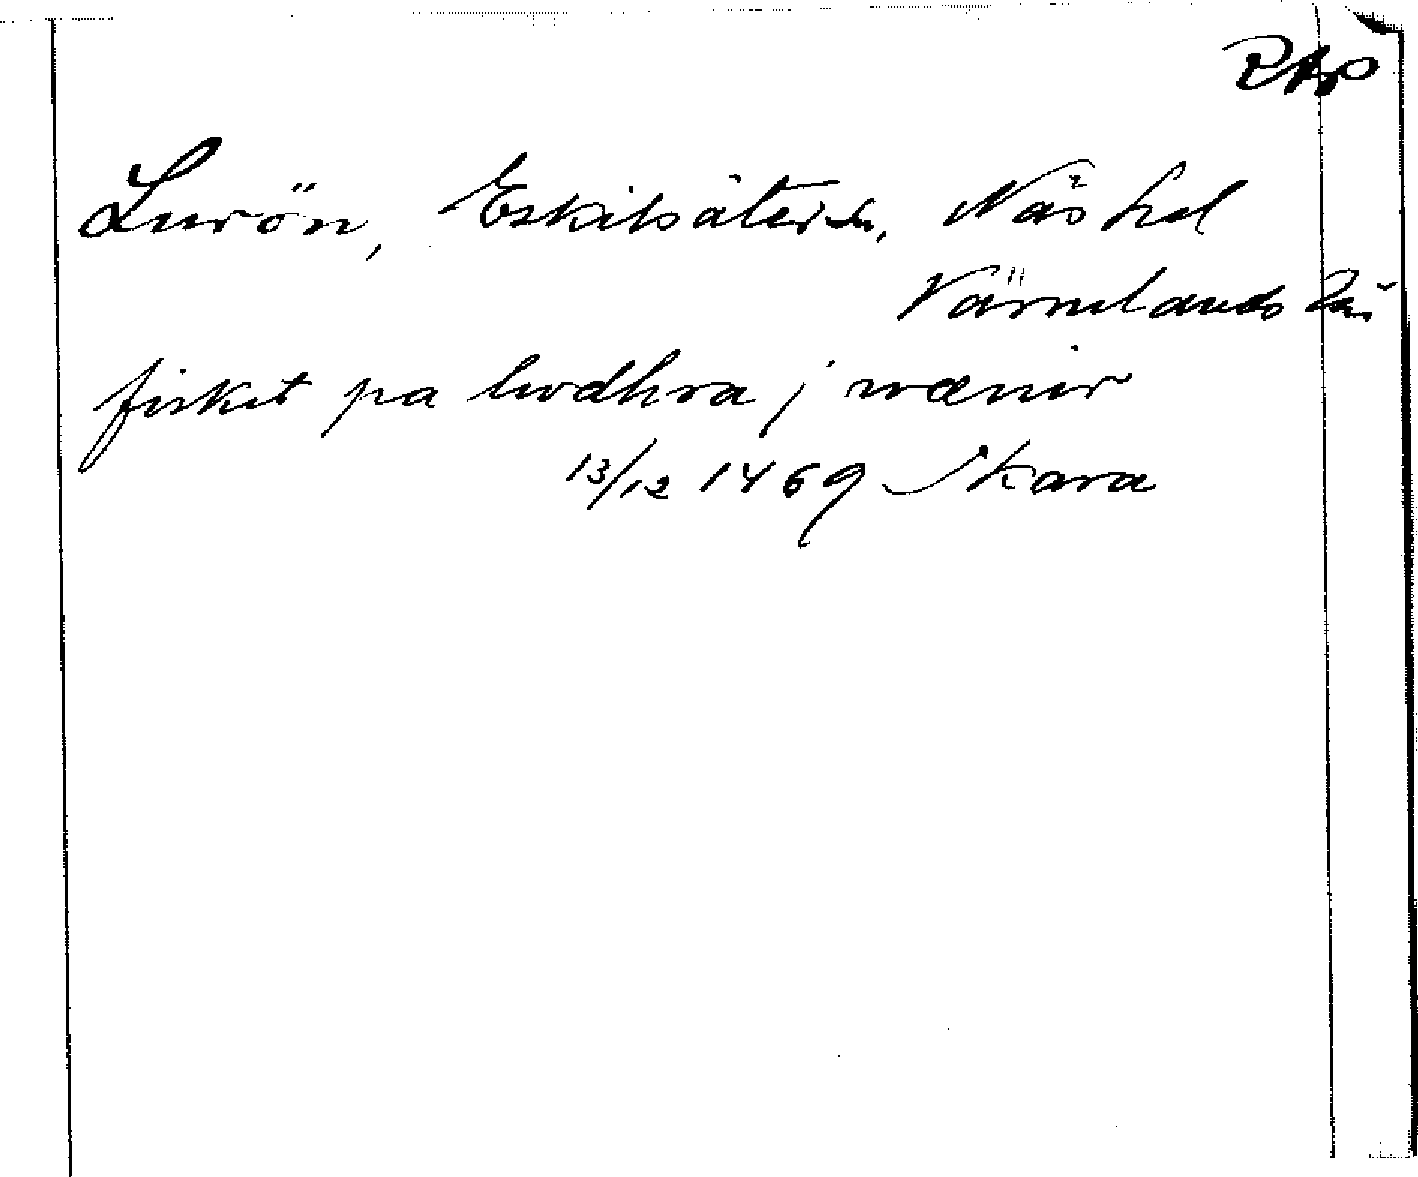 RAp
Lurön, Eskilsäter sn, Näs hd
Värmlands län
fisket pa lwdhra j wænir
13/12 1469 Skara